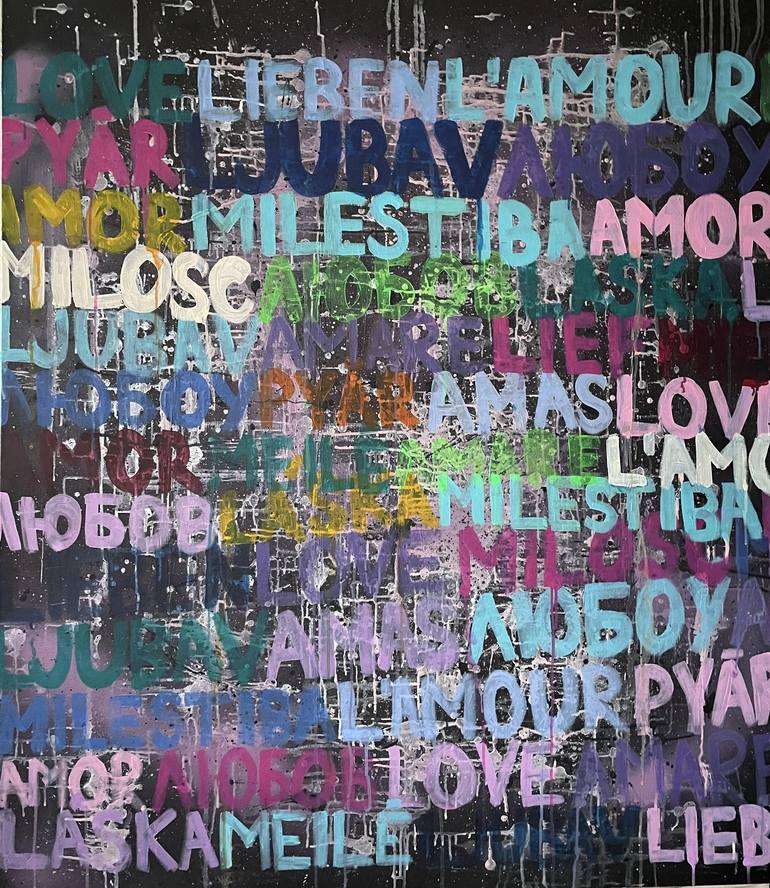 LOVE LIEBEN L'AMOUR
PYĀR LJUBAV ЛЮБОУ
AMOR MILESTIBA AMOR
MILOSC ЛЮБОВ LASKA L
LJUBAV AMARE LIEF
ЛЮБОУ PYAR AMAS LOVE
AMOR MEILE AMARE L'AMO
ЛЮБОВ LASKA MILESTIBA
LIEBEN LOVE MILOSC
LJUBAV AMAS ЛЮБОУ A
MILESTIBA L'AMOUR PYĀR
AMOR ЛЮБОВ LOVE AMARE
LÁSKA MEILĖ LJUBAV LIEB